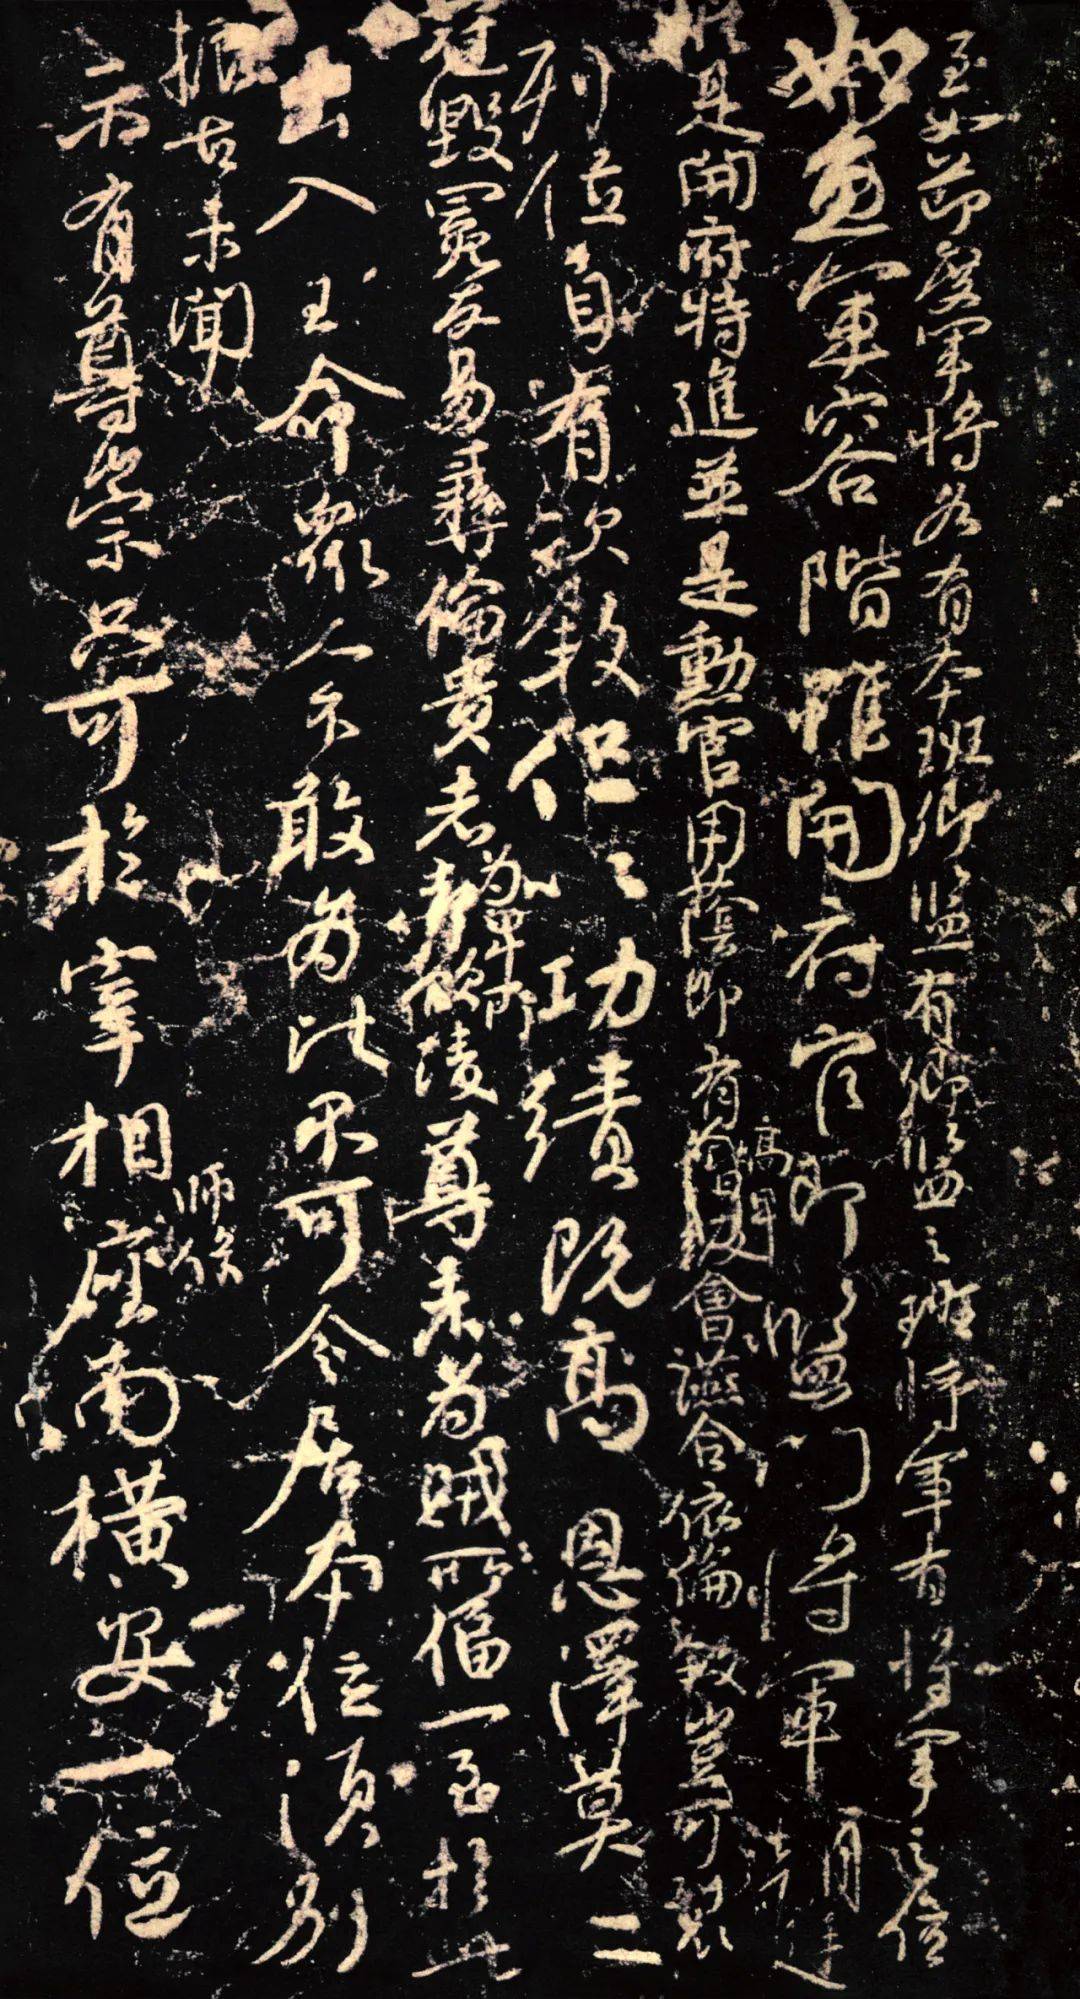 至如節度軍將各有本班卿監有卿監之班將軍有將軍之位
如魚軍容階雖開府官即監門將軍朝廷
縱是開府特進並是勳官用蔭即有高卑會讌合依倫敘豈可裂
列位自有次敘但以功績既高恩澤莫二
冠毀冕反易彝倫貴者為卑所凌尊者為賊所偪一至於此
出入王命眾人不敢為比不可令居本位須別
振古未聞
師保
示有尊崇只可於宰相座南橫安一位